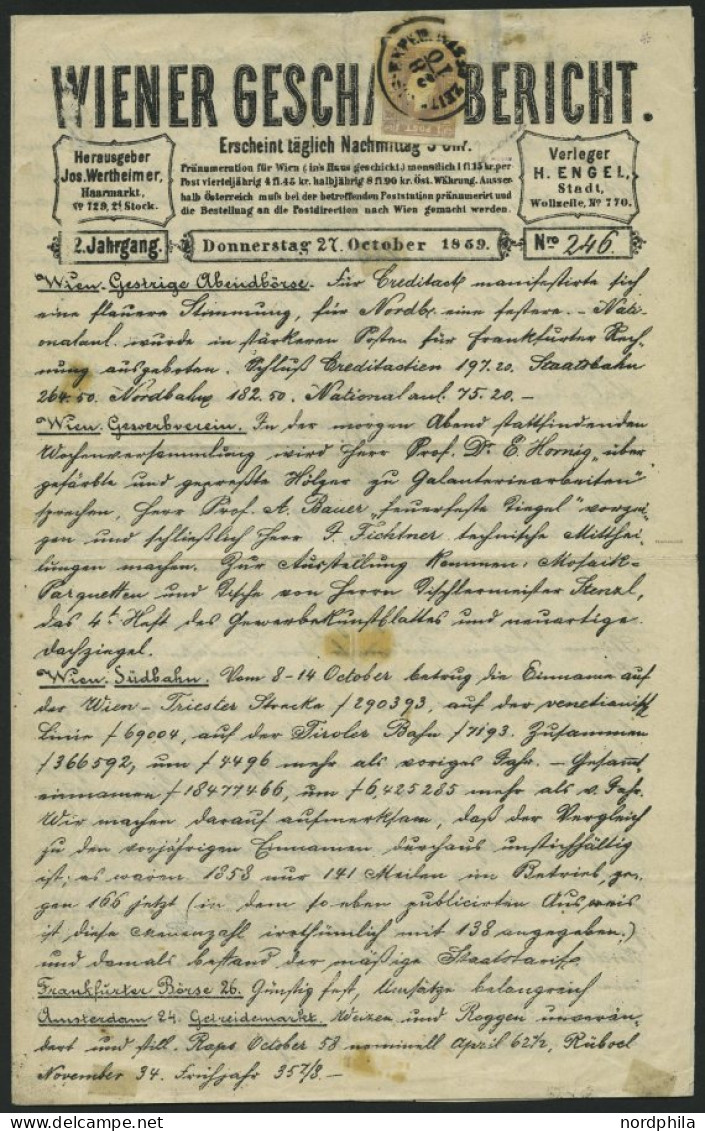 WIENER GESCHÄ BERICHT.
Erscheint täglich Nachmittag 5 Uhr.
Herausgeber
Jos. Wertheimer,
Haarmarkt,
No 729, 2t Stock.
Pränumeration für Wien (in's Haus geschickt) monatlich 1 fl 15 kr. per
Post vierteljährig 4 fl. 45 kr. halbjährig 8 fl 90 kr. Öst. Währung. Ausser-
halb Österreich muſs bei der betreffenden Poststation pränumerirt und
die Bestellung an die Postdirection nach Wien gemacht werden.
Verleger
H. ENGEL,
Stadt,
Wollzeile, No 770.
2. Jahrgang.
Donnerstag 27. October 1859.
Nro 246.
Wien. Gestrige Abendbörse. Für Creditact manifestirte sich
eine flauere Stimmung, für Nordb. eine festere. – Nati-
onalanl. wurde in stärkeren Posten für Frankfurter Rech-
nung ausgeboten. Schluß Creditactien 197.20. Staatsbahn
264.50. Nordbahn 182.50. Nationalanl. 75.20. –
Wien. Gewerbverein. In der morgen Abend stattfindenden
Wochenversammlung wird Herr Prof. Dr. E. Hornig „über
gefärbte und gepreßte Hölzer zu Galanteriearbeiten"
sprechen, Herr Prof. A. Bauer „feuerfeste Ziegel" vorzei-
gen und schließlich Herr J. Fichtner technische Mitthei-
lungen machen. Zur Ausstellung kommen: Mosaik-
Parquetten und Tische von Herrn Tischlermeister Stenzl,
das 4t Heft des Gewerbekunstblattes und neuartige
Dachziegel.
Wien. Südbahn. Vom 8-14 October betrug die Einname auf
der Wien – Triester Strecke f 290393, auf der venetianisch
Linie f 69004, auf der Tiroler Bahn f 7193. Zusammen
f 366592, um f 4496 mehr als voriges Jahr. – Gesamt
einnamen f 18477466, um f 6,425285 mehr als v. Jahr.
Wir machen darauf aufmerksam, daß der Vergleich
zu den vorjährigen Einnamen durchaus unstichhältig
ist; es waren 1858 nur 141 Meilen im Betrieb, ge-
gen 166 jetzt (in dem so eben publicirten Ausweis
ist diese Meilenzahl irrthümlich mit 138 angegeben.)
und damals bestand der mäßige Staatstarif.
Frankfurter Börse 26. Günstig fest, Umsätze belangreich
Amsterdam 24. Getreidemarkt. Weizen und Roggen unverän-
dert und still. Raps October 58 nominell April 62½, Rüböel
November 34. Frühjahr 35 7/8. –
nordphila